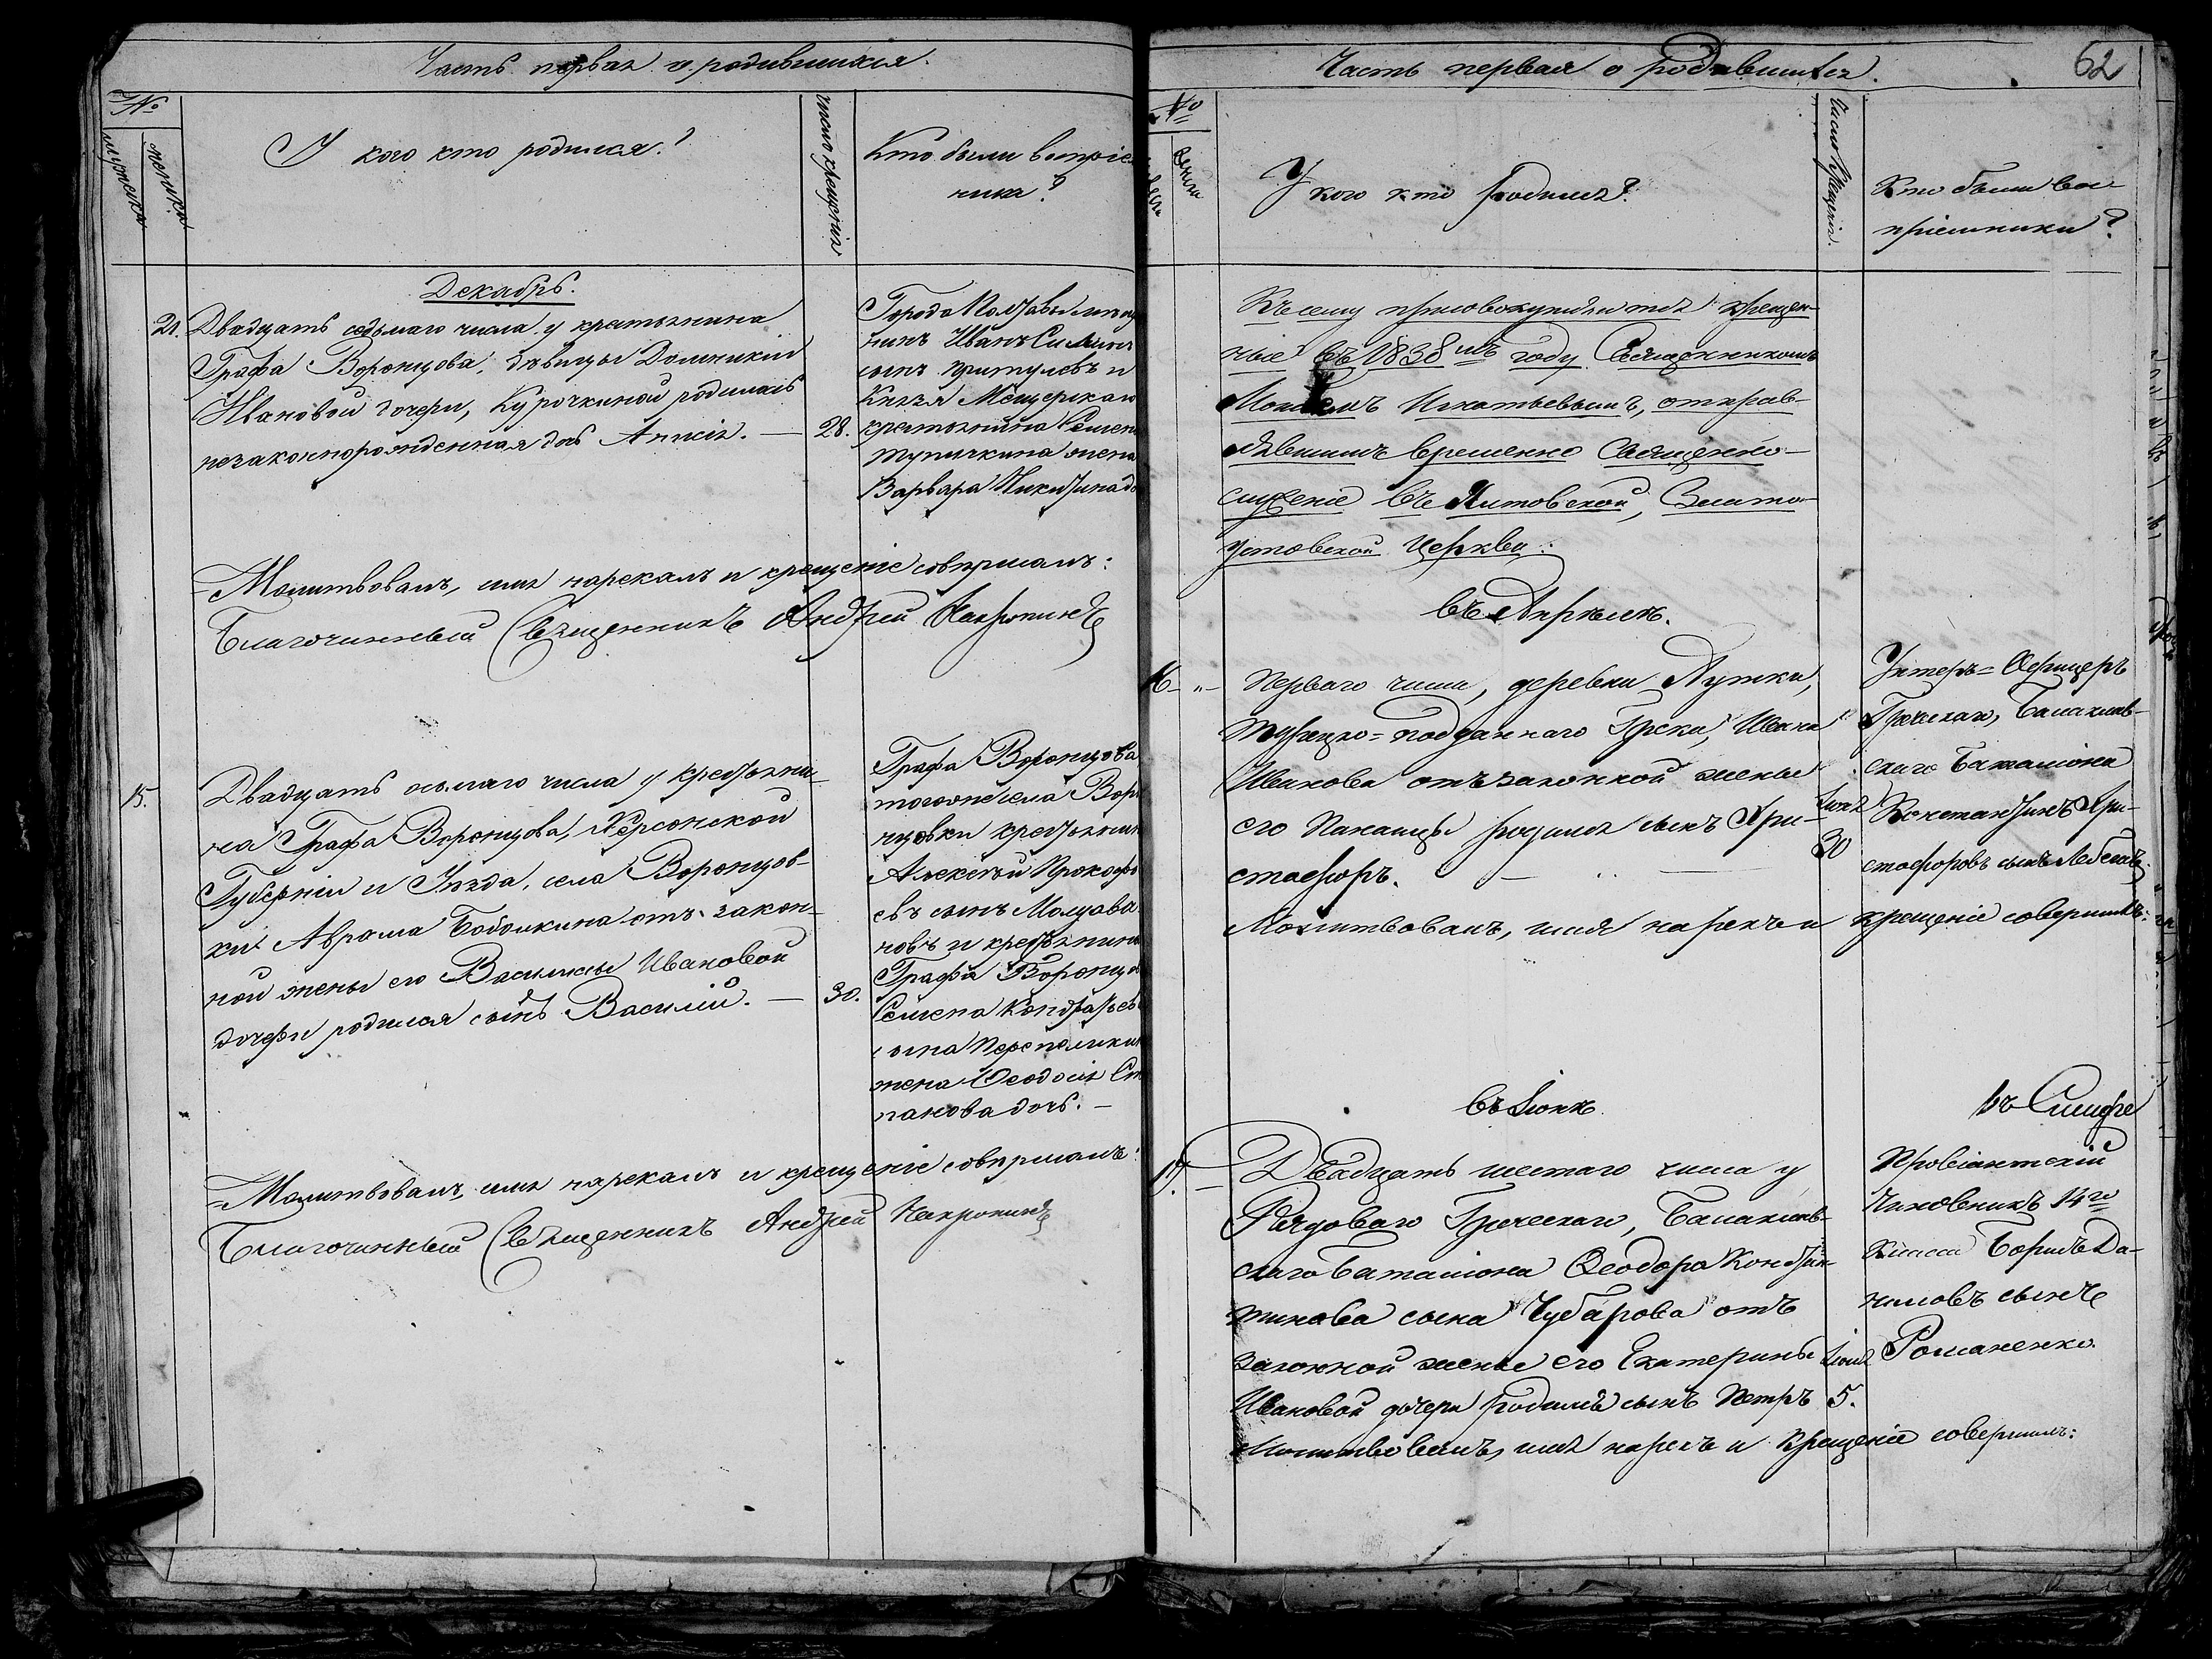 Часть первая о родившихся.
№
мужеска
женска
У кого кто родился?
число крещенія
Кто были воспріем
ники?
Декабрь.
21. Двадцать седьмаго числа у крестьянина
Графа Воронцова, дѣвицы Домникіи
Ивановой дочери, Курочкиной родилась
незаконнорожденная дочь Анисія. — 28.
Города Полтавы мѣща
нинъ Иванъ
сынъ Притулевъ и
Князя Мещерскаго
крестьянина Семена
Тупичкина жена
Варвара Никитина до
Молитвовалъ, имя нарекалъ и крещеніе совершалъ:
Благочинный Священникъ Андрей
15. Двадцать осьмаго числа у крестьяни-
на Графа Воронцова, Херсонской
Губерніи и Уѣзда, села Воронцов-
ки Аврама Бабошкина отъ закон-
ной жены его Василисы Ивановой
дочери родился сынъ Василій. — 30.
Графа Воронцова
тогожъ села Ворон
цовки крестьянин
Алексѣй Прокофь
евъ сынъ Молдава
новъ и крестьянина
Графа Воронцов
Семена Кондратьев
сына
жена Ѳеодосія Сте
панова дочь. —
Молитвовалъ имя нарекалъ и крещеніе совершалъ:
Благочинный Священникъ Андрей
Часть первая о родившихся.
62
№
женска
У кого кто родился?
Число крещенія.
Кто были вос-
пріемники?
Къ сему присовокупляются крещен-
ные въ 1838мъ году Священникомъ
Игнатьевымъ, отправ-
лявшимъ временно Священно-
служеніе въ Ялтовской, Злато-
устовской Церкви:
въ Апрѣлѣ.
16 - „ - Перваго числа, деревни Аутки,
Турецко=подданнаго Грека, Ивана
Иванова отъ законной жены
его Панаіоцы родился сынъ Хри-
стофоръ. — „ —
Іюня
30
Унтеръ=Офицеръ
Греческаго, Балаклав-
скаго Баталіона
Константинъ Хри-
стофоровъ сынъ
Молитвовалъ, имя нарекъ и крещеніе совершилъ:
въ Іюнѣ
въ Симфе
17. — Двадцать шестаго числа у
Рядоваго Греческаго, Балаклав-
скаго Баталіона Ѳеодора Констан-
тинова сына Чубарова отъ
законной жены его Екатерины
Ивановой дочери родился сынъ Петръ
Іюля
5.
Провіантскій
Чиновникъ 14го
Класса Борисъ Да-
ниловъ сынъ
Романенко.
Молитвовалъ, имя нарекъ и крещеніе совершилъ: